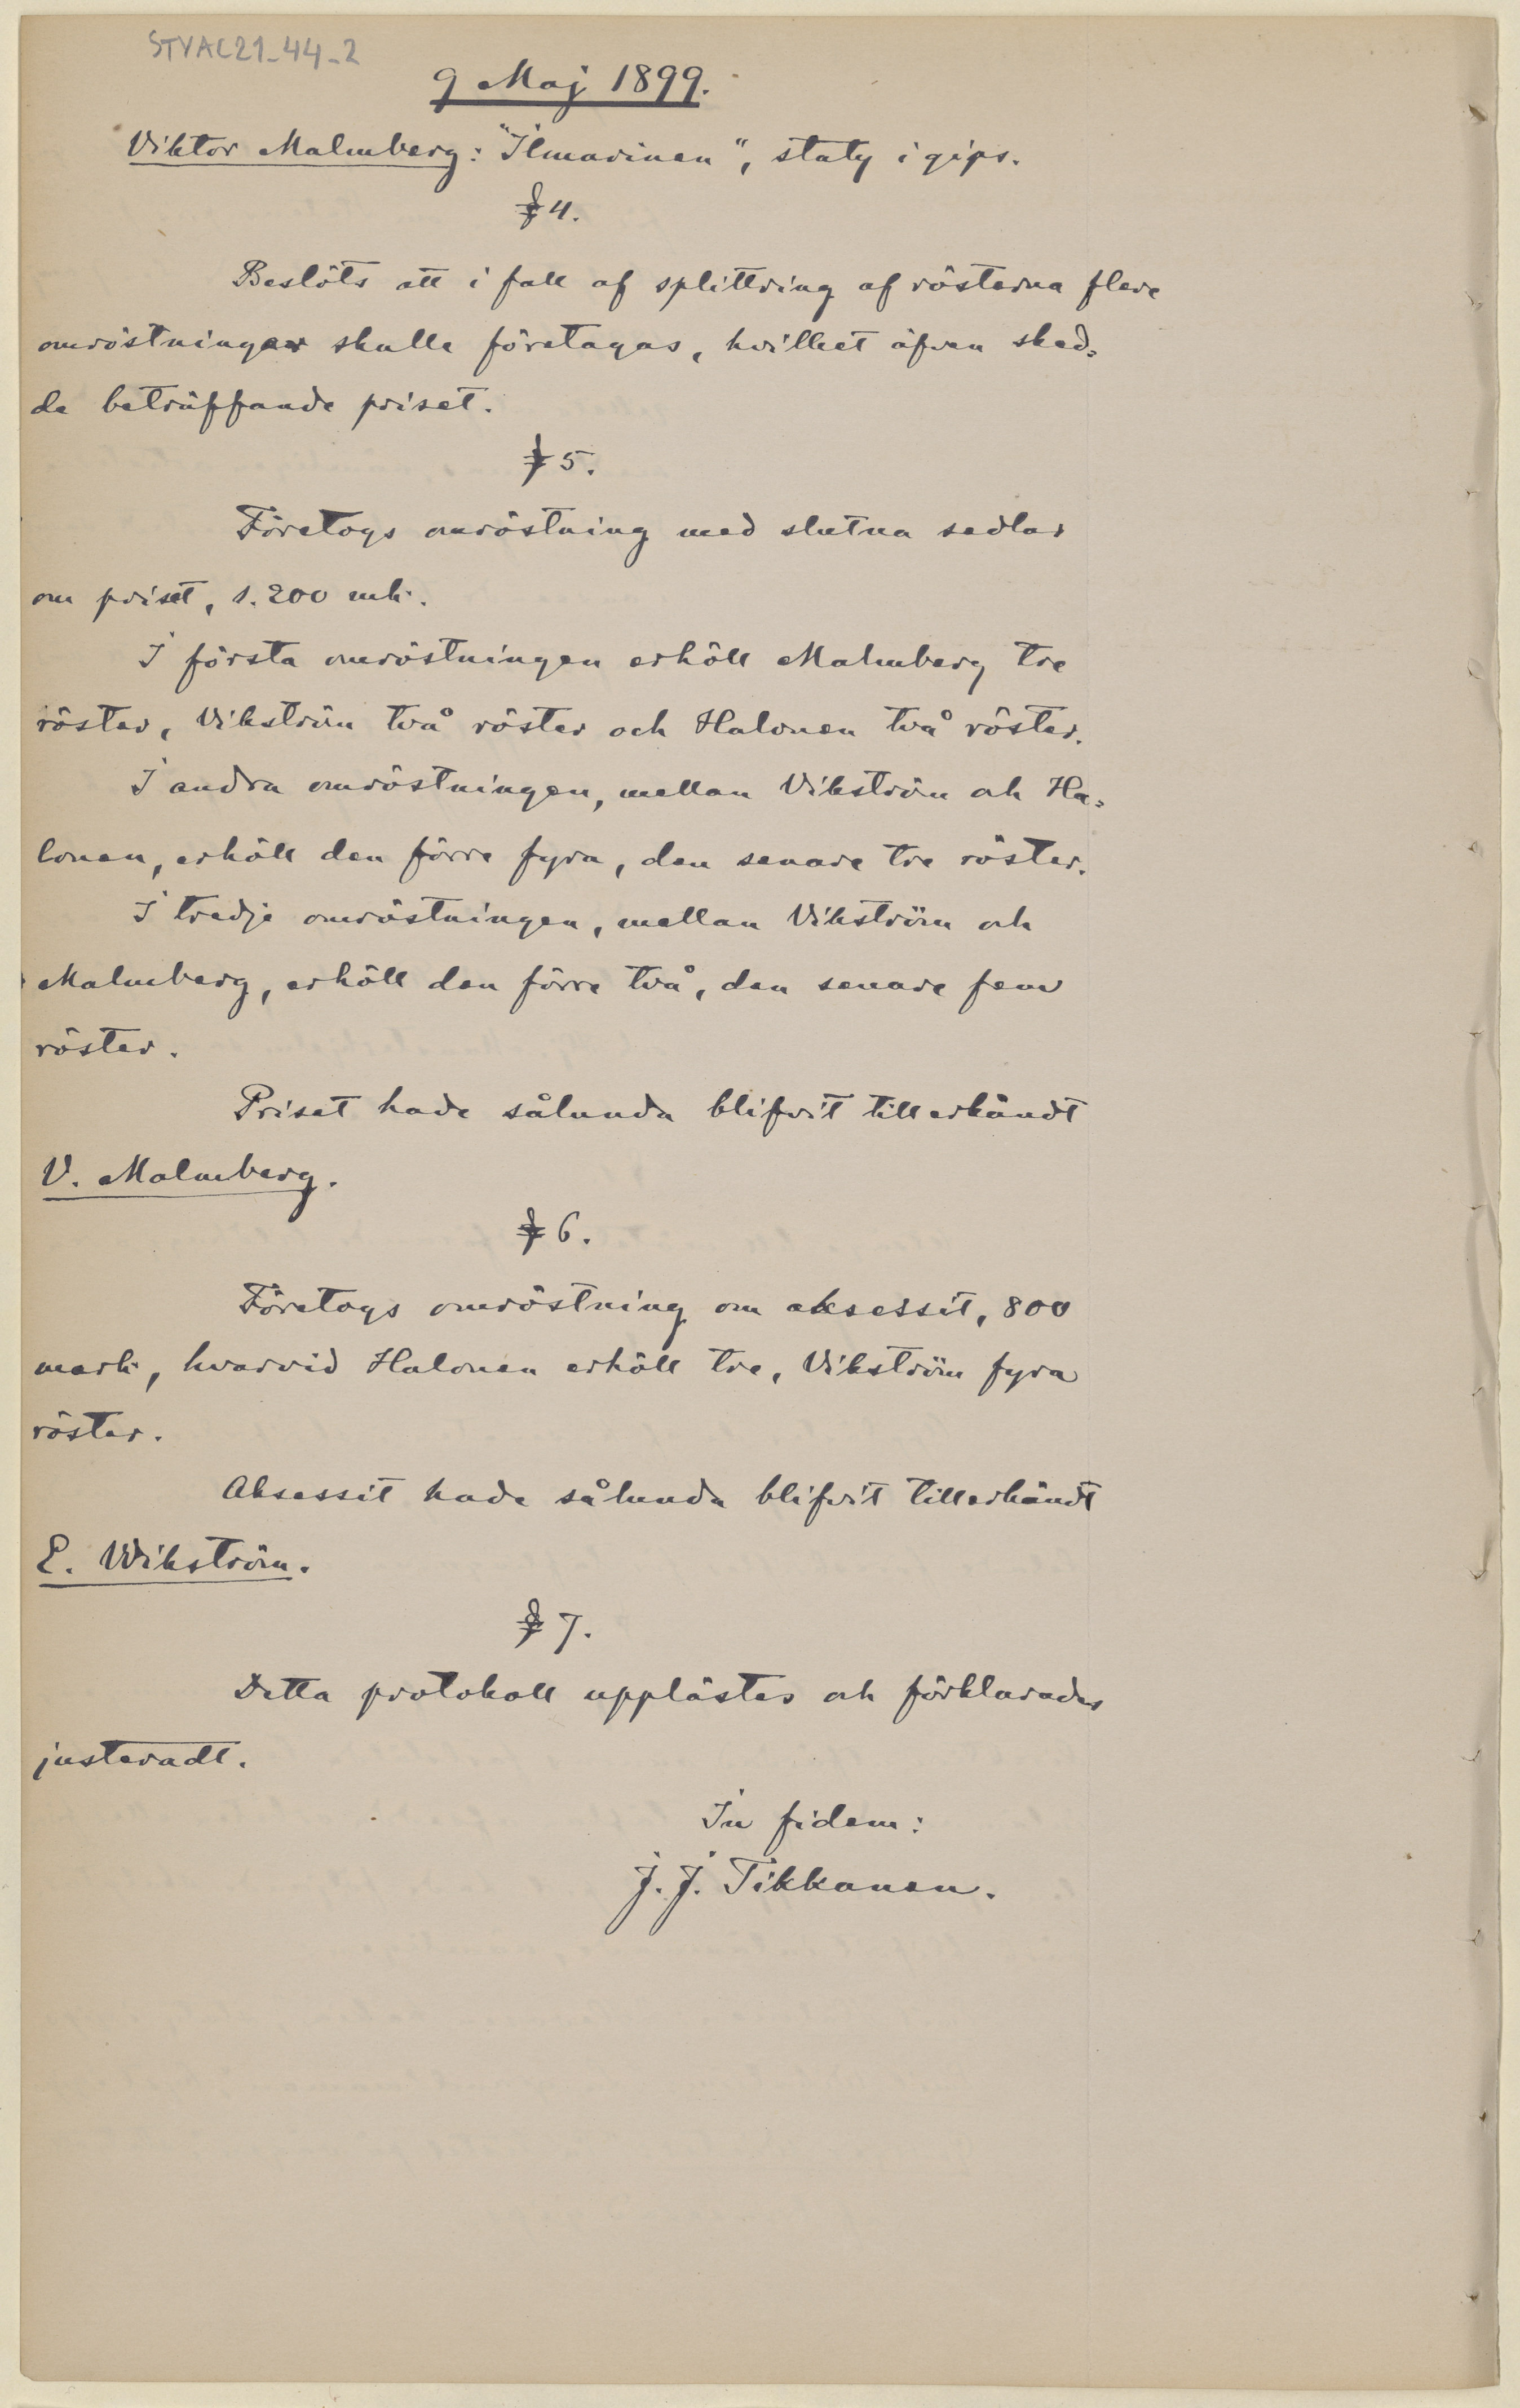 STVAL21_44_2
9 Maj 1899.
Viktor Malmberg: "Ilmarinen", staty i gips.
§ 4.
Beslöts att i fall af splittring af rösterna flere
omröstningar skulle företagas, hvilket äfven sked=
de beträffande priset.
§ 5.
Företogs omröstning med slutna sedlar
om priset, 1.200 mk.
I första omröstningen erhöll Malmberg tre
röster, Vikström två röster och Halonen två röster.
I andra omröstningen, mellan Vikström och Ha=
lonen, erhöll den förre fyra, den senare tre röster.
I tredje omröstningen, mellan Vikström och
Malmberg, erhöll den förre två, den senare fem
röster.
Priset hade sålunda blifvit tillerkändt
V. Malmberg.
§ 6.
Företogs omröstning om aksessit, 800
mark, hvarvid Halonen erhöll tre, Vikström fyra
röster.
Aksessit hade sålunda blifvit tillerkändt
E. Wikström.
§ 7.
Detta protokoll upplästes och förklarades
justeradt.
In fidem:
J. J. Tikkanen.